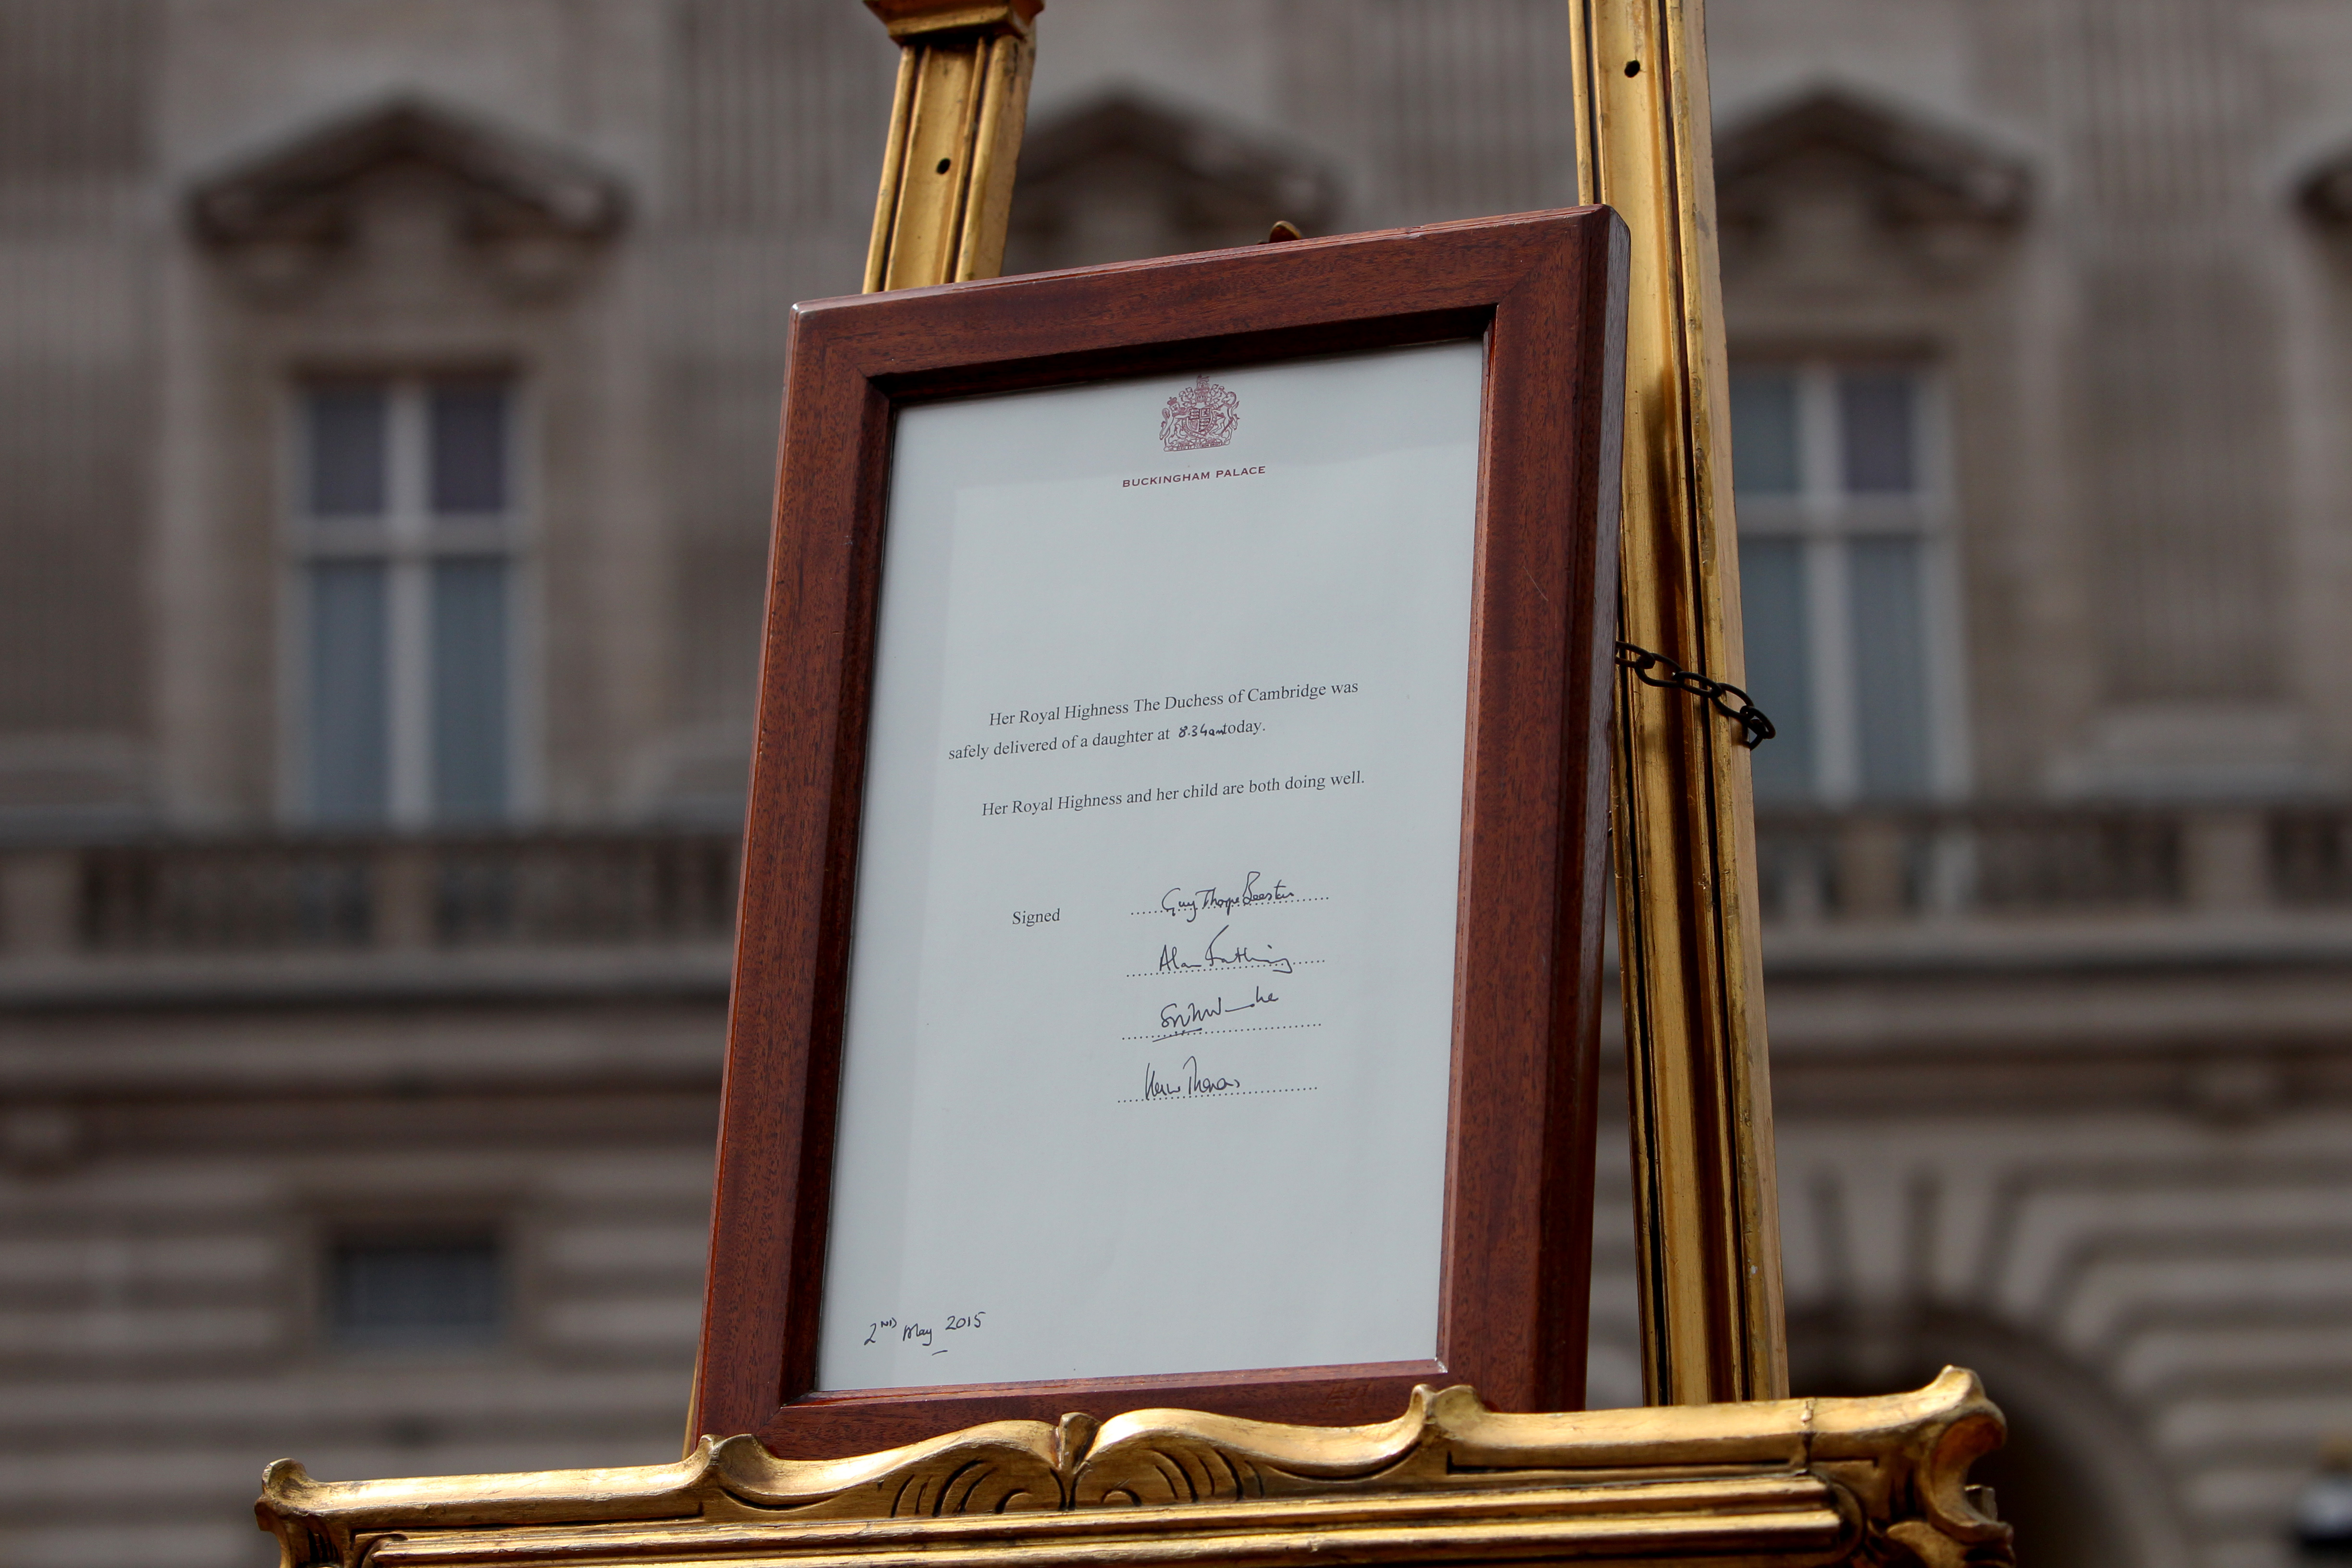 BUCKINGHAM PALACE
Her Royal Highness The Duchess of Cambridge was
safely delivered of a daughter at 8.34am today.
Her Royal Highness and her child are both doing well.
Signed Guy Thorpe Beeston
Alan Farthing
2ND May 2015